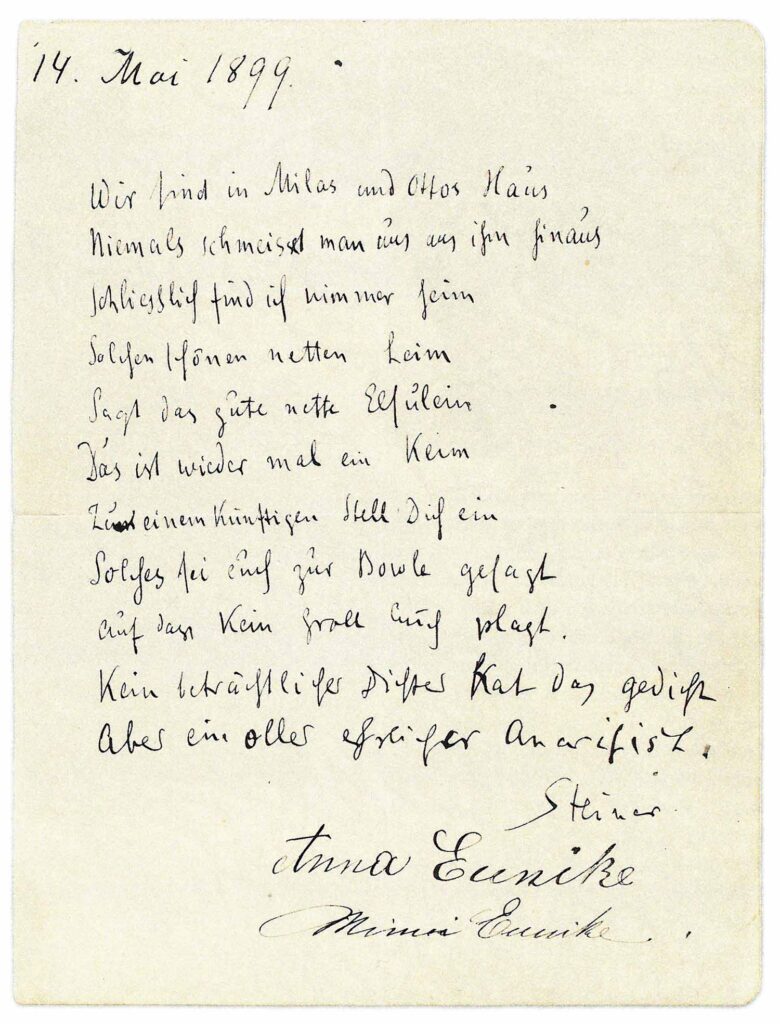 14. Mai 1899.
Wir sind in Milas und Ottos Haus
Niemals schmeisst man uns aus ihm hinaus
Schliesslich find ich nimmer heim
Solchen schönen netten Leim
Sagt das gute nette Elsulein
Das ist wieder mal ein Keim
Zu einem Künftigen Stell Dich ein
Solches sei euch zur Bowle gesagt
auf dass Kein Groll euch plagt.
Kein beträchtlicher Dichter hat das gedicht
Aber ein oller ehrlicher Anarchist.
Steiner
Anna Eunike
Eunike